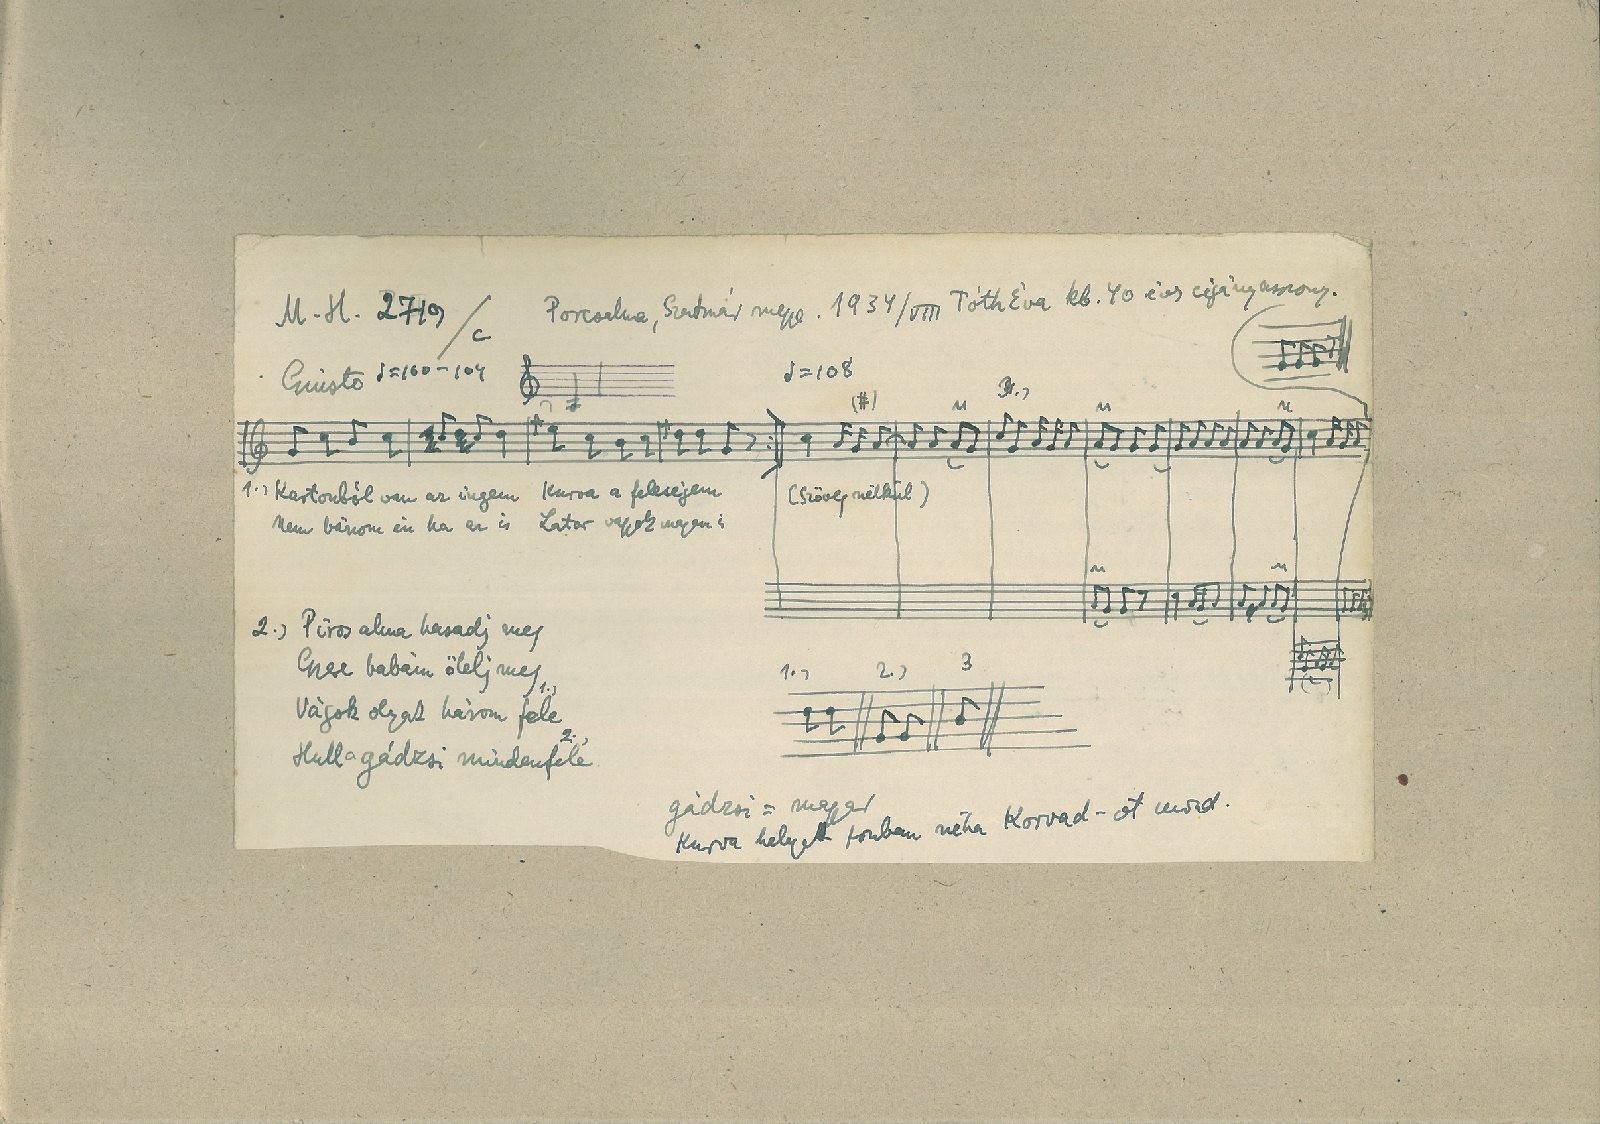 M.-H. 2719/c
Porcsalma, Szatmár megye. 1934/VIII Tóth Éva kb. 40 éves cigányasszony.
Giusto ♩=100-104
♩=108
(#)
3.)
1.) Kartonból van az ingem Kurva a feleségem
(Szöveg nélkül)
Nem bánom én ha az is Lator vagyok magam is
2.) Piros alma hasadj meg
Gyere babám ölelj meg
Vágok olyat három felé 1.)
Hull a gádzsi mindenfelé 2.)
1.) 2.) 3
gádzsi = magyar
Kurva helyett tonban néha Korvad-ot mond.